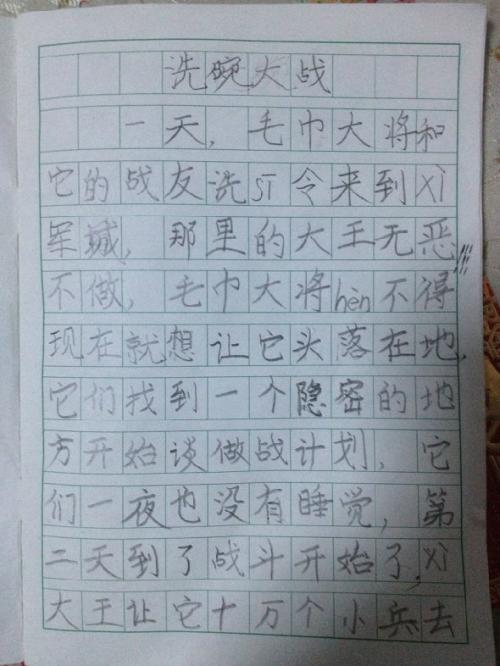 洗碗大战
一天，毛巾大将和
它的战友洗sī令来到xì
军城，那里的大王无恶
不做，毛巾大将hèn不得
现在就想让它头落在地，
它们找到一个隐密的地
方开始谈做战计划，它
们一夜也没有睡觉，第
二天到了战斗开始了，xì
大王让它十万个小兵去